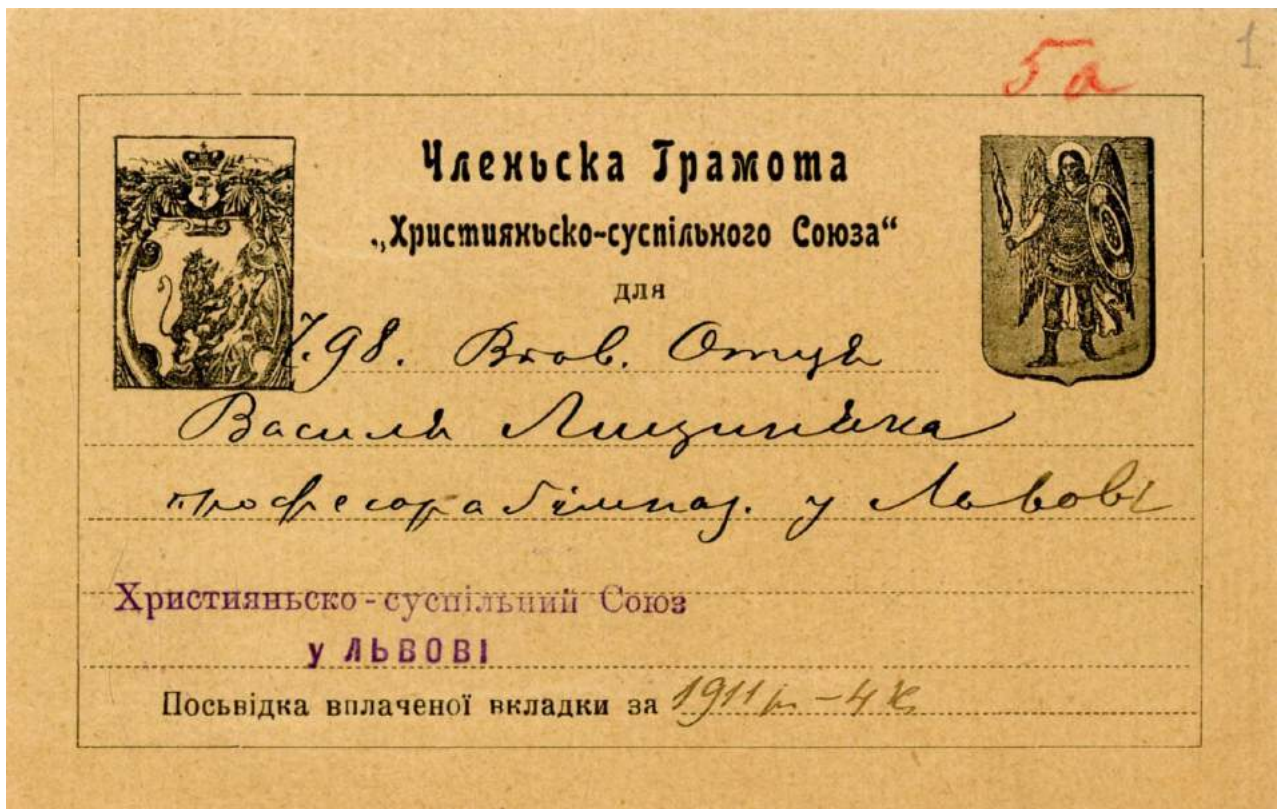 5a
1
Членьска Грамота
„Християньско-суспільного Союза“
для
Ч. 98. Впов. Отця
Василя Лициняка
професора гімназ. у Львові
Християньско-суспільний Союз
у ЛЬВОВІ
Посьвідка вплаченої вкладки за 1911 р. – 4 К